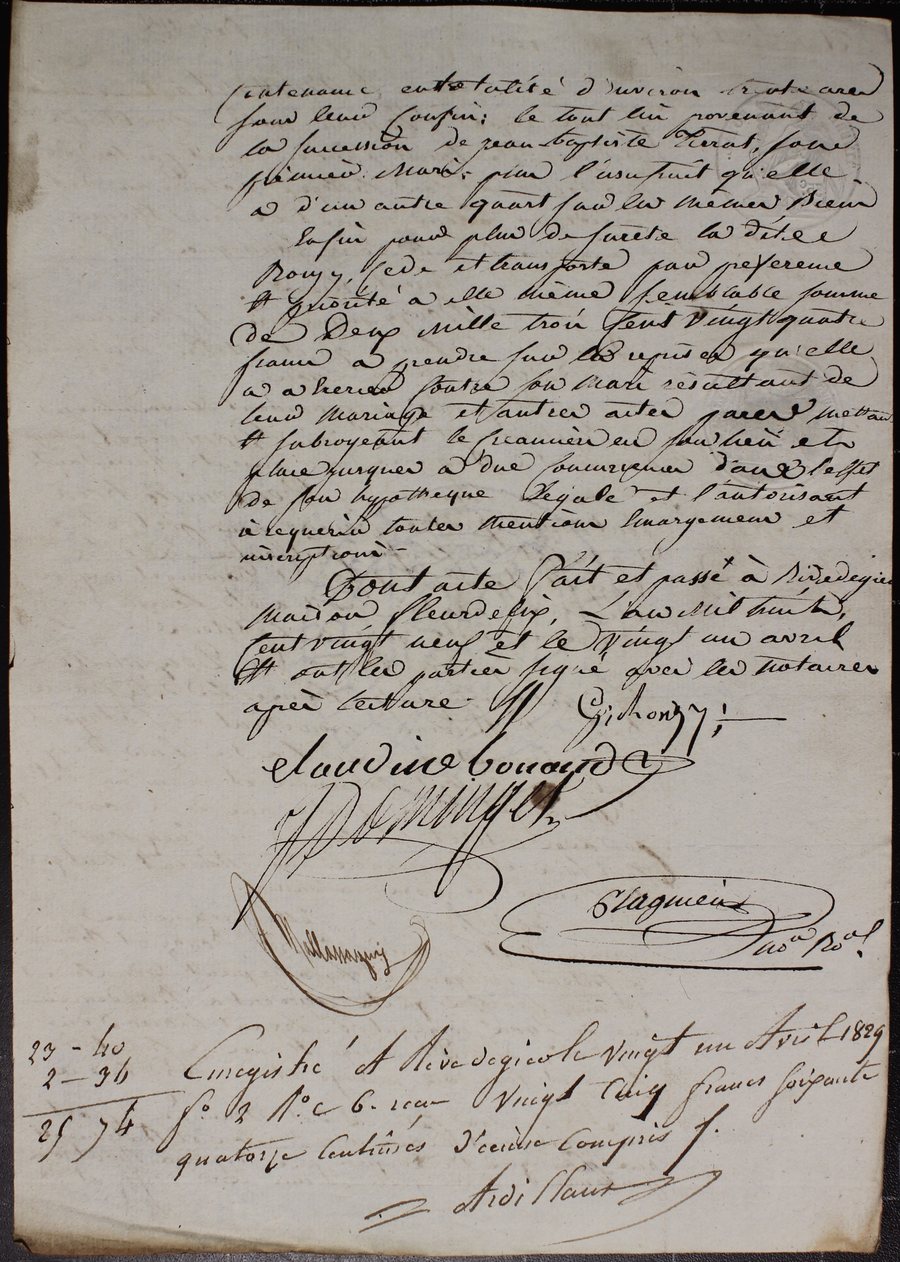 Contenance en totalité d'environ trente area
sous leurs Confins; le tout lui provenant de
la succession de jean-baptiste Pierat, son
premier Mari; pour l'usufruit qu'elle
a d'un autre quart sur les mêmes Biens
Enfin pour plus de sureté la dite
cede et transporte par preference
et priorité a elle même semblable somme
de Deux Mille trois Cent Vingt quatre
francs a prendre sur les reprises qu'elle
a a Exercer Contre son Mari résultant de
leur Mariage et autres actes mettant
et subrogeant le creancier en son lieu et
place jusques a due concurrence dans l'effet
de son hypotheque légale et l'autorisant
à requerir toutes Mentions Emargement et
inscriptions-
Dont acte fait et passé à Rivedegier
Maison fleurdelix, L'an Mil huit
Cent Vingt neuf et le Vingt un avril
et ont les parties signé avec les notaires
après lecture
claudine bonand
not Roal
23 - 40
2 - 34
25 74
Enregistré A Rivedegier le vingt un Avril 1829
fo 2 Ro c 6. reçu Vingt Cinq francs soixante
quatorze Centimes d'ecime Compris f.